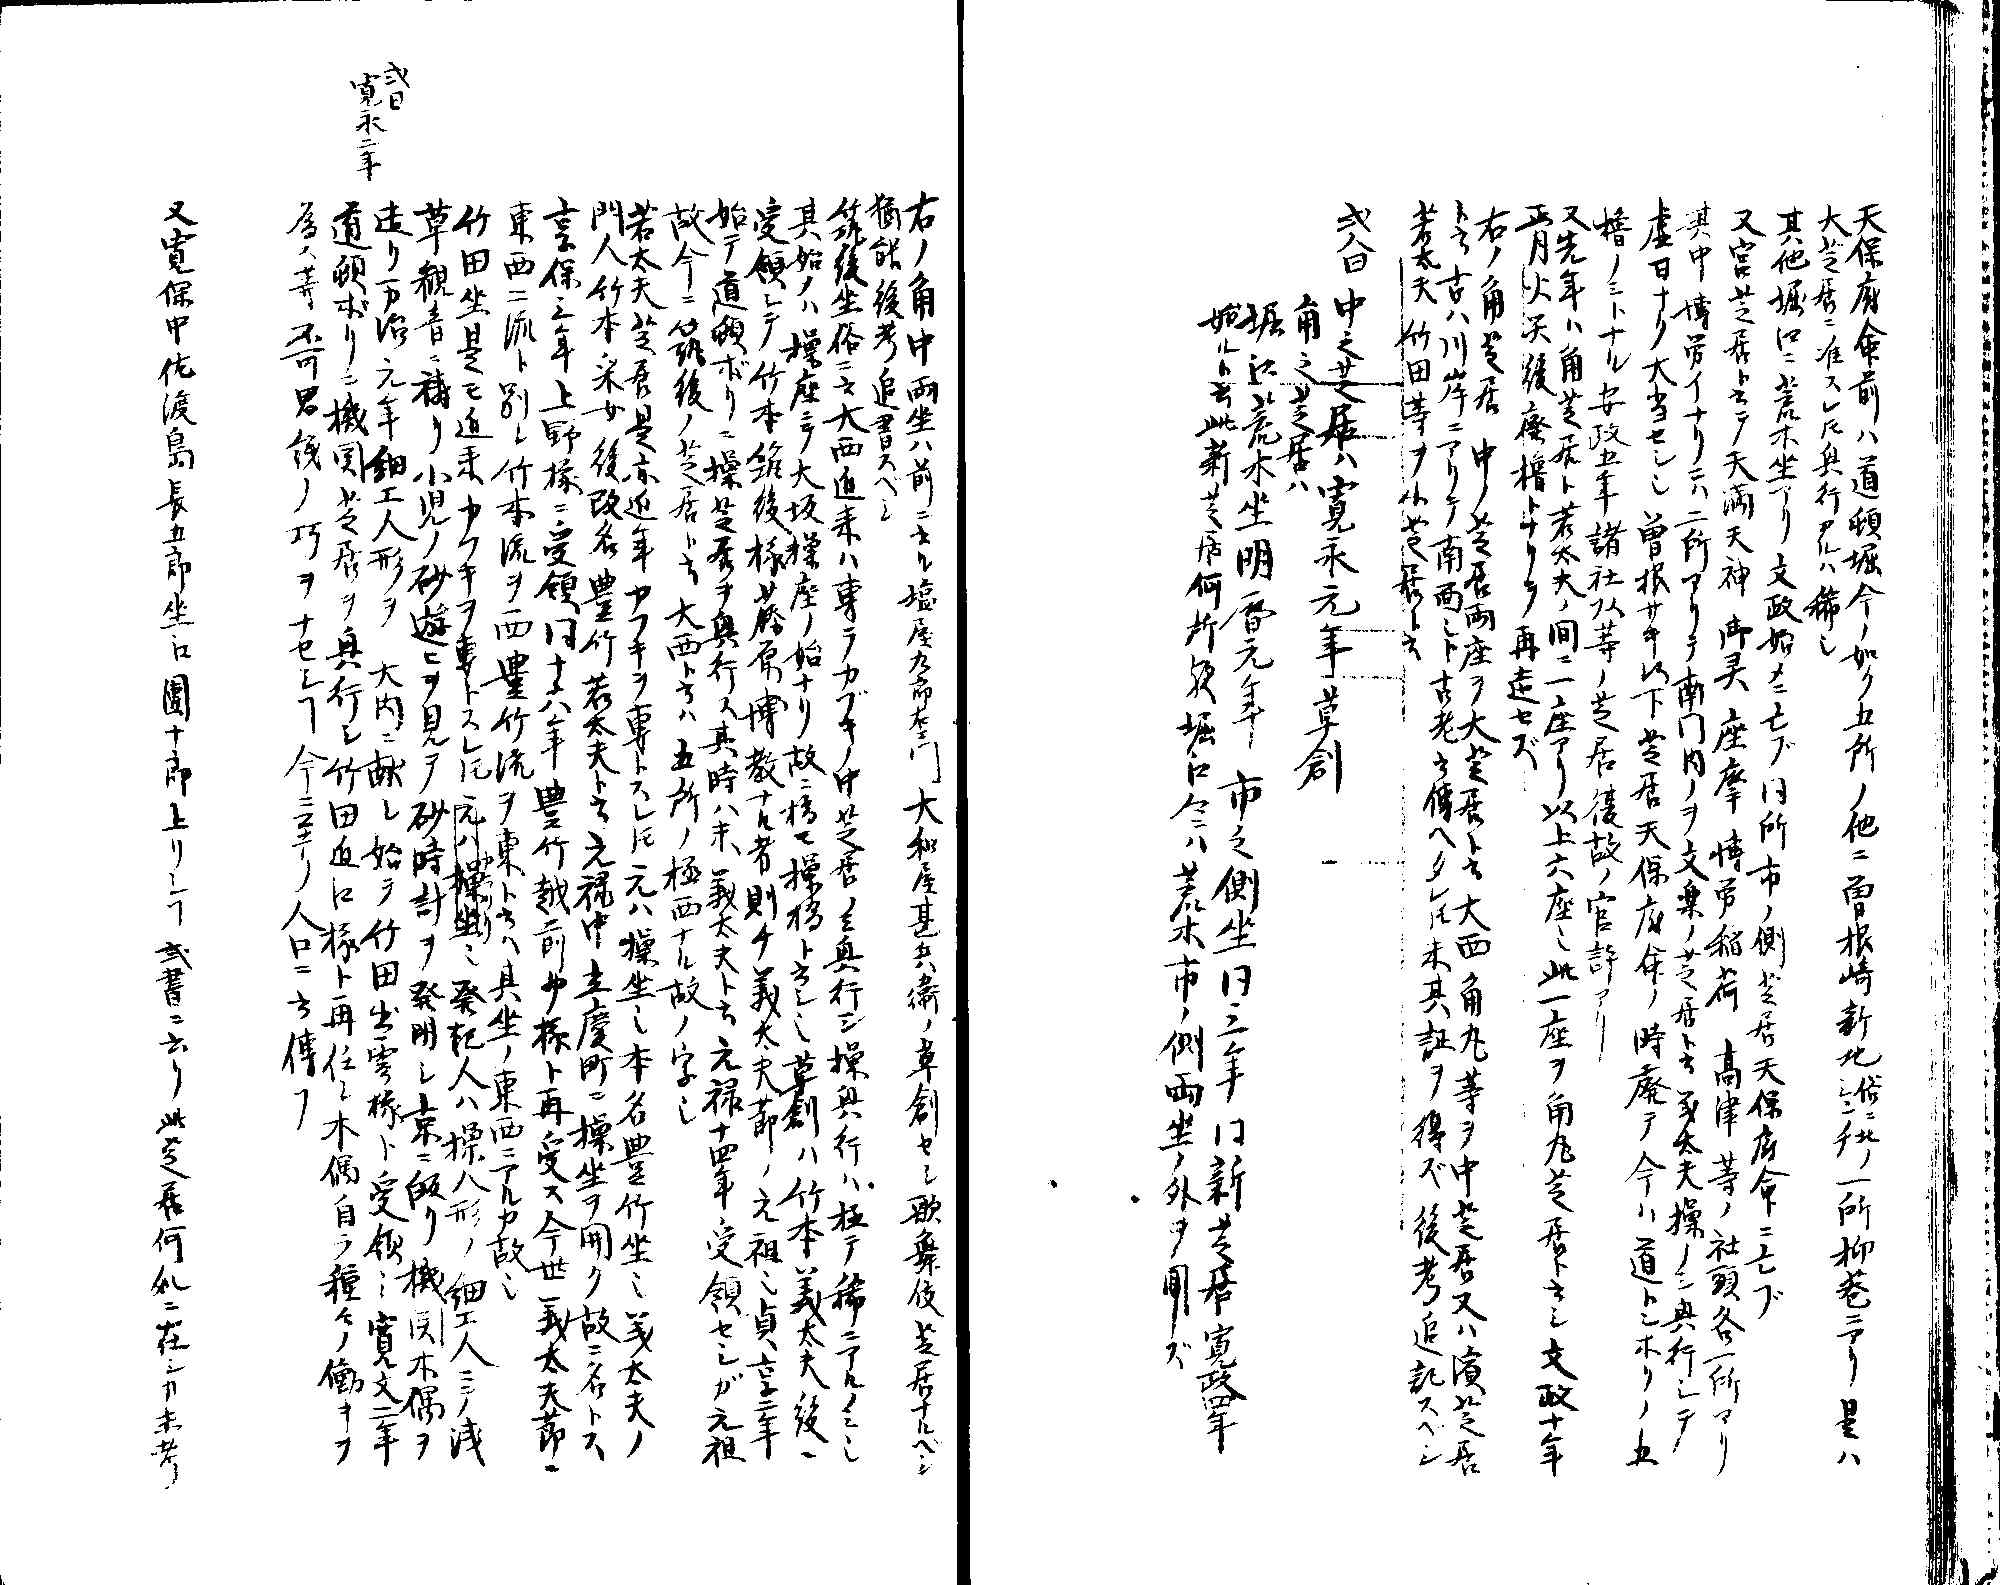 天保府命前ハ道頓堀今ノ如ク五所ノ他ニ曽根崎新地俗ニ北ノシンチノ一所柳巷ニアリ是ハ
大芝居ニ准スレ𪜈興行アルハ稀也
其他堀江ニ荒木坐アリ文政始メニ亡ブ同所市ノ側芝居天保府命ニ亡ブ
又宮芝居ト云テ天満天神 御灵 座摩 博労稲荷 高津等ノ社頭各一所アリ
其中博労イナリニハ二所アリテ南門内ノヲ文楽ノ芝居ト云義太夫操ノミ興行シテ
虚日ナク大当セシ也曽根サキ以下芝居天保府命ノ時廃テ今ハ道トンホリノ五
櫓ノミトナル安政五年諸社以等ノ芝居復故ノ官許アリ
又先年ハ角芝居ト若太夫ノ間ニ一座アリ以上六座也此一座ヲ角丸芝居ト云シ文政十年
正月火災後廃櫓トナリテ再造セズ
右ノ角芝居 中ノ芝居両座ヲ大芝居ト云大西角丸等ヲ中芝居又ハ濱芝居
ト云古ハ川岸ニアリテ南面也ト古老云傳ヘタレ𪜈未其証ヲ得ズ後考追記スベシ
若太夫 竹田等ヲ小芝居ト云
或人曰 中之芝居ハ寛永元年草創
角之芝居ハ
堀江荒木坐明暦元年 市之側坐同三年 同新芝居寛政四年
始ルト云此新芝居何所歟堀江今ニハ荒木市ノ側両坐ノ外ヲ聞ズ
右ノ角中両坐ハ前ニ云ル塩屋九郎右衛門 大和屋甚兵衛ノ草創セシ歌舞伎芝居ナルベシ
猶能後考追書スヘシ
筑後坐俗ニ云大西近来ハ専ラカブキノ中芝居ノミ興行シ操興行ハ極テ稀ニアルノミ也
其始ノハ操座ニテ大坂操座ノ始ナリ故ニ橋モ操橋ト云シ也草創ハ竹本義太夫後ニ
受領シテ竹本筑後掾藤原博教ナル者則チ義太夫節ノ元祖也貞享二年
始テ道頓ボリニ操芝居ヲ興行ス其時ハ未義太夫ト云元禄十四年受領セシガ元祖
故今ニ筑後ノ芝居ト云大西ト云ハ五所ノ極西ナル故ノ字也
若太夫芝居是亦近年カフキヲ専トスレ𪜈元ハ操坐也本名豊竹坐也義太夫ノ
門人竹本采女後改名豊竹若太夫ト云元禄中立慶町ニ操坐ヲ開ク故ニ名トス
享保三年上野掾ニ受領同十六年豊竹越前少掾ト再受ス今世義太夫節ニ
東西二流ト別レ竹本流ヲ西豊竹流ヲ東ト云ハ其坐ノ東西ニアルカ故也
竹田坐是モ近来カフキヲ専トスレ𪜈元ハ操坐也発起人ハ操人形ノ細工人ニテ浅
草観音ニ祷リ小児ノ砂遊ヒヲ見テ砂時計ヲ発明シ京ニ皈リ機関木偶ヲ
造リ万治元年細工人形ヲ 大内ニ献シ始テ竹田出雲掾ト受領シ寛文二年
道頓ボリニ機関芝居ヲ興行シ竹田近江掾ト再任シ木偶自ラ種々ノ働キヲ
為ス等不可思儀ノ巧ヲナセシ𬼀今ニ至リ人口ニ云傳フ
又寛保中佐渡島長五郎坐江團十郎上リシ𬼀或書ニ云リ此芝居何処ニ在シカ未考
或曰
寛永二年